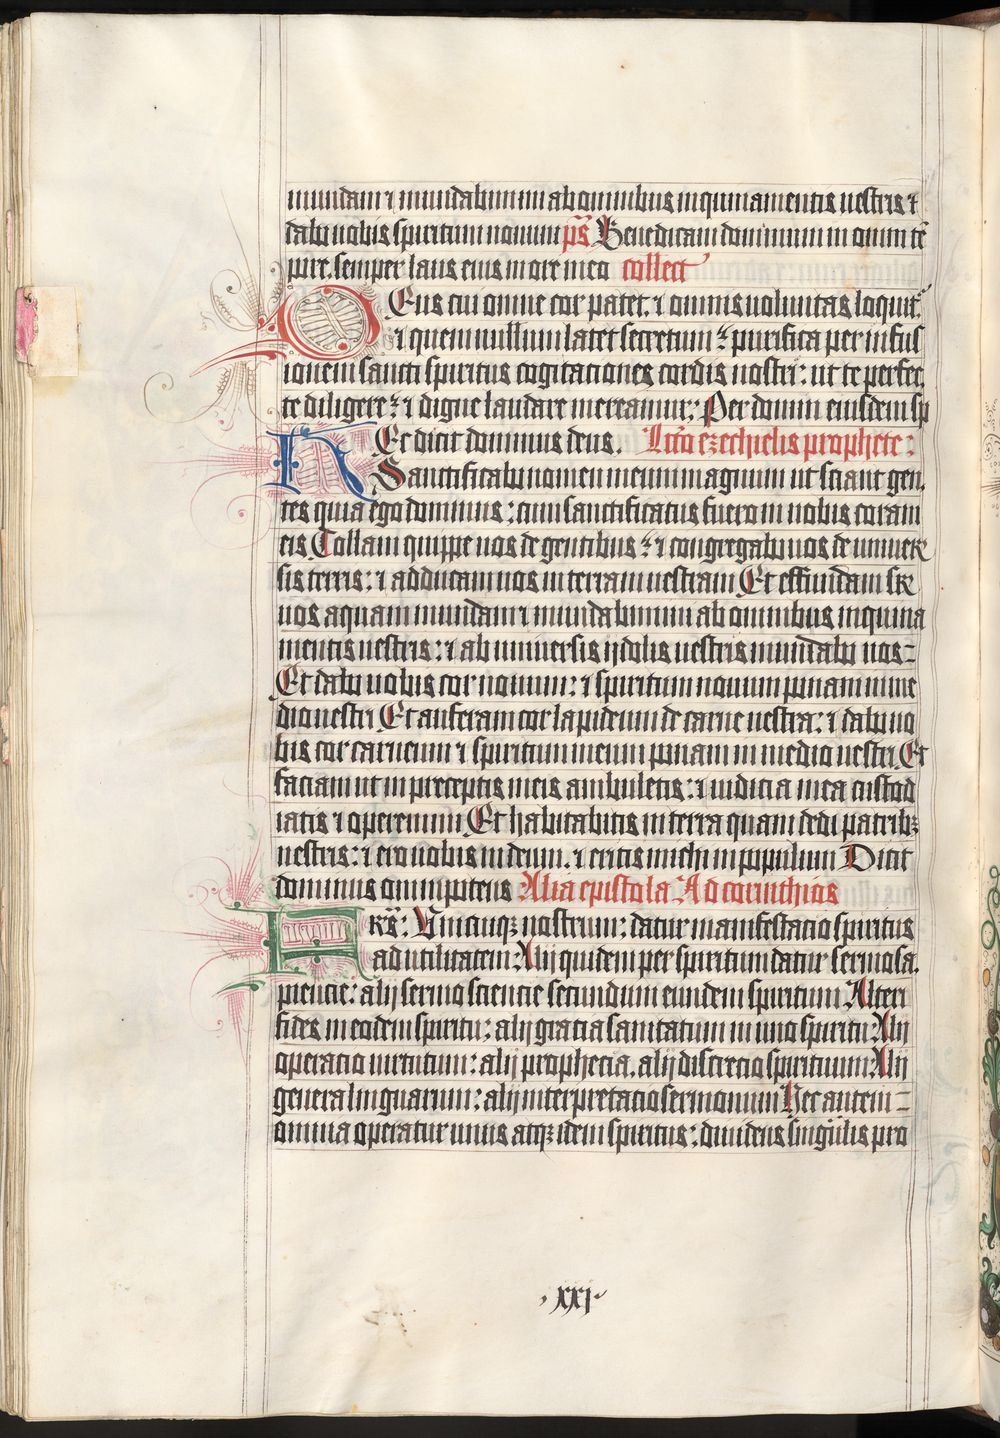 mundam ⁊ mundabimini ab omnibus inquinamentis uestris ⁊
dabo uobis spiritum nouum ps̄ Benedicam dominum in omni tē
pore. semper laus eius in ore meo collect
Deus cui omne cor patet: ⁊ omnis uoluntas loquit᷑
⁊ quem nullum latet secretum: purifica per infus
ionem sancti spiritus cogitaciones cordis nostri: ut te perfec
te diligere: ⁊ digne laudare mereamur: Per domin eiusdem sp
Hec dicit dominus deus. Lc̄io ezechielis prophete:
Sanctificabo nomen meum magnum ut sciant gen
tes quia ego dominus: cum sanctificatus fuero in uobis coram
eis Tollam quippe uos de gentibus: ⁊ congregabo uos de uniuer
sis terris: ⁊ adducam uos in terram uestram Et effundam sr
uos aquam mundam ⁊ mundabimini ab omnibus inquina
mentis uestris: ⁊ ab uniuersis ijdolis uestris mundabo uos=
Et dabo uobis cor nouum: ⁊ spiritum nouum ponam in me
dio uestri Et auferam cor lapideum de carne uestra: ⁊ dabo uo
bis cor carneum ⁊ spiritum meum ponam in medio uestri. Et
faciam ut in preceptis meis ambuletis: ⁊ iudicia mea custod
iatis ⁊ operemini Et habitabitis in terra quam dedi patribꝫ
uestris: ⁊ ero uobis in deum. ⁊ eritis michi in populum Dicit
dominus omnipotens Alia epistola Ad corinthios
Frs̄: Unicuiqꝫ nostrum: datur manifestacio spiritus
ad utilitatem: Alij quidem per spiritum datur sermo sa
piencie: alij sermo sciencie secundum eundem spiritum Alteri
fides in eodem spiritu: alij gracia sanitatum in uno spiritu: Alij
operacio uirtutum: alij prophecia. alij discrecio spirituum Alij
genera linguarum: alij interpretacio sermonum Hec autem=
omnia operatur unus atqꝫ idem spiritus: diuidens singulis pro
xxj